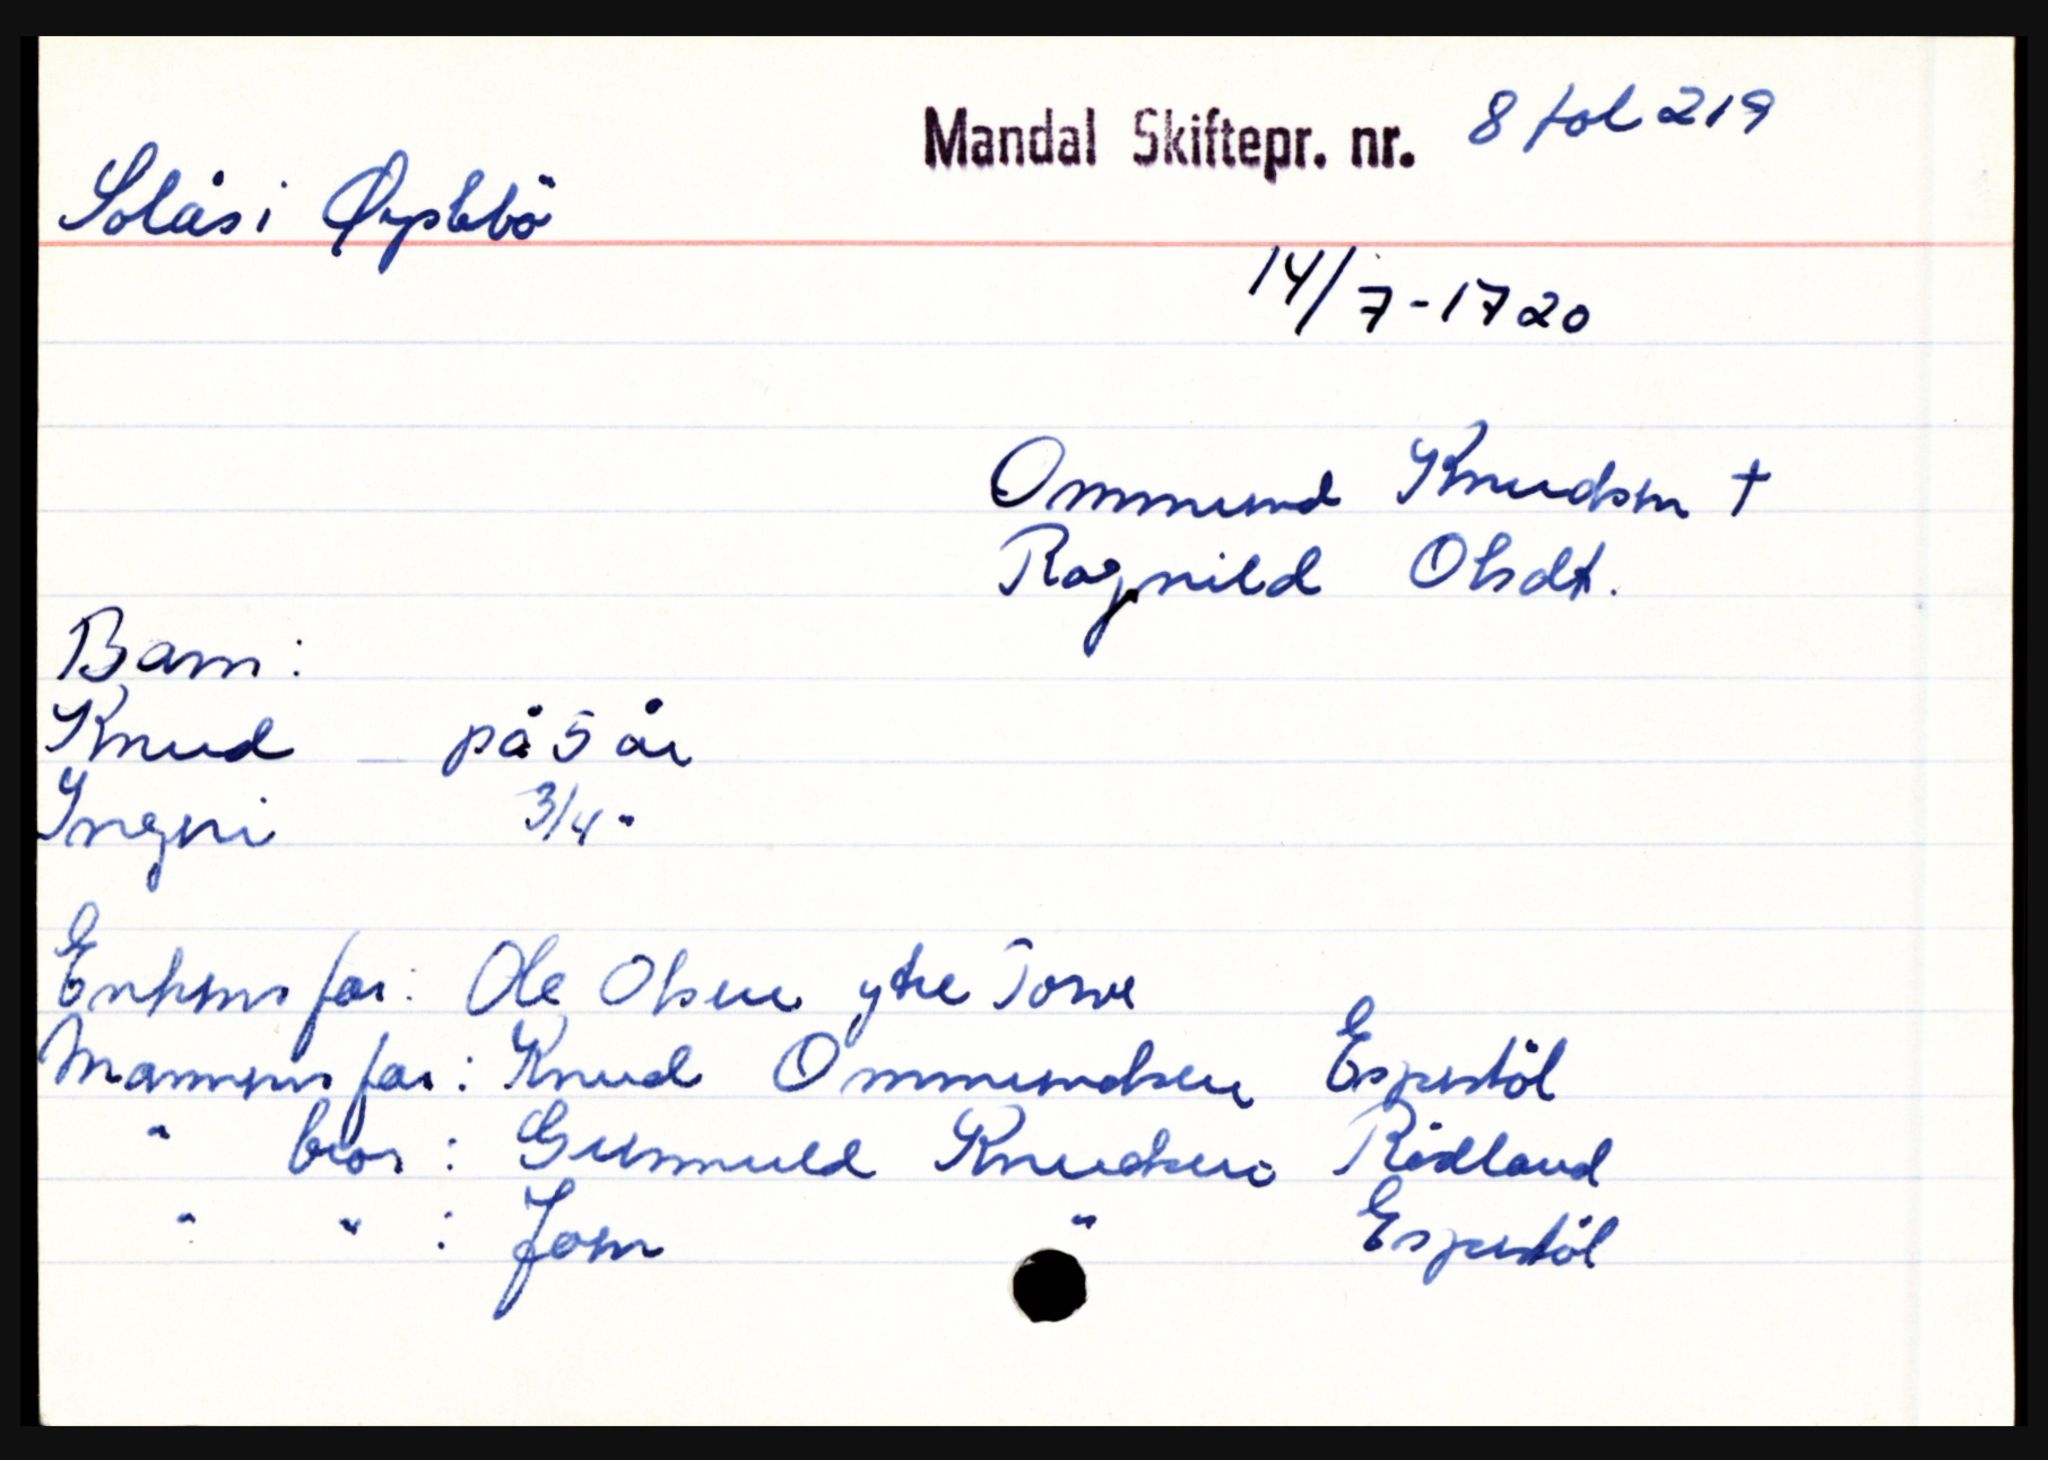 Mandal Skiftepr. nr. 8 fol 219
Solås i Øyslebö
14/7-1720
Ommund Knudsen †
Ragnild Olsdt.
Barn:
Knud på 5 år
Ingeri 3/4 "
Enkens far: Ole Olsen ytre
Mannens far: Knud Ommundsen Espestöl
" bror: Gunnuld Knudsen Rödland
" " : Jon " Espestöl